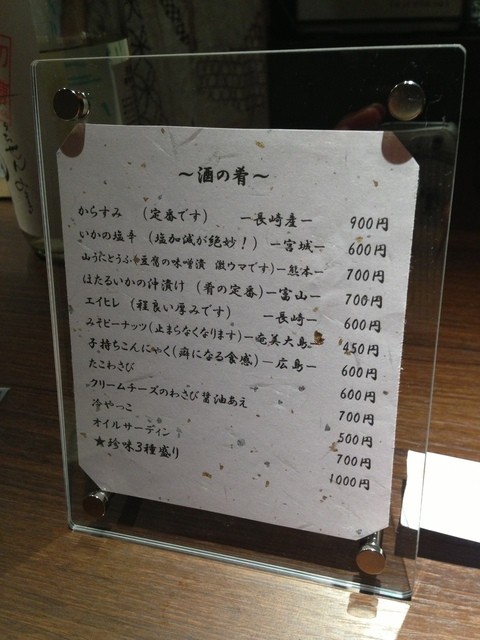 ～酒の肴～
からすみ （定番です） ー長崎産ー 900円
いかの塩辛 （塩加減が絶妙！） ー宮城ー 600円
山うにとうふ（豆腐の味噌漬 激ウマです）ー熊本ー 700円
ほたるいかの沖漬け （肴の定番）ー富山ー 700円
エイヒレ （程良い厚みです） ー長崎ー 600円
みそピーナッツ（止まらなくなります）ー奄美大島ー 450円
子持ちこんにゃく（癖になる食感）ー広島ー 600円
たこわさび 600円
クリームチーズのわさび醤油あえ 700円
冷やっこ 500円
オイルサーディン 700円
★珍味3種盛り 1000円